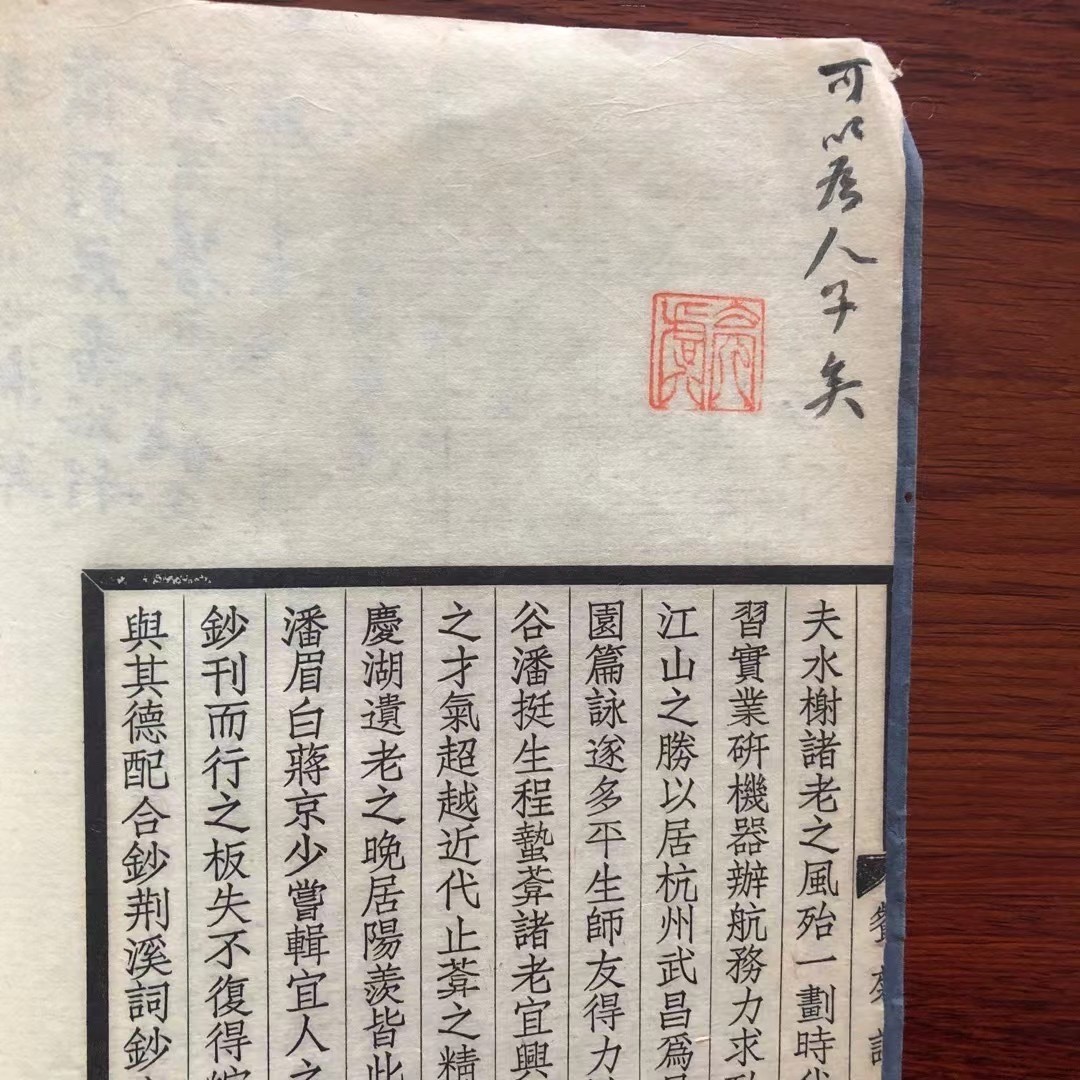 可以為人子矣
夫水榭諸老之風殆一劃時
習實業硏機器辦航務力求
江山之勝以居杭州武昌爲
園篇詠遂多平生師友得力
谷潘挺生程蟄葊諸老宜興
之才氣超越近代止葊之精
慶湖遺老之晚居陽羨皆此
潘眉白蔣京少嘗輯宜人之
鈔刊而行之板失不復得
與其德配合鈔荆溪詞鈔